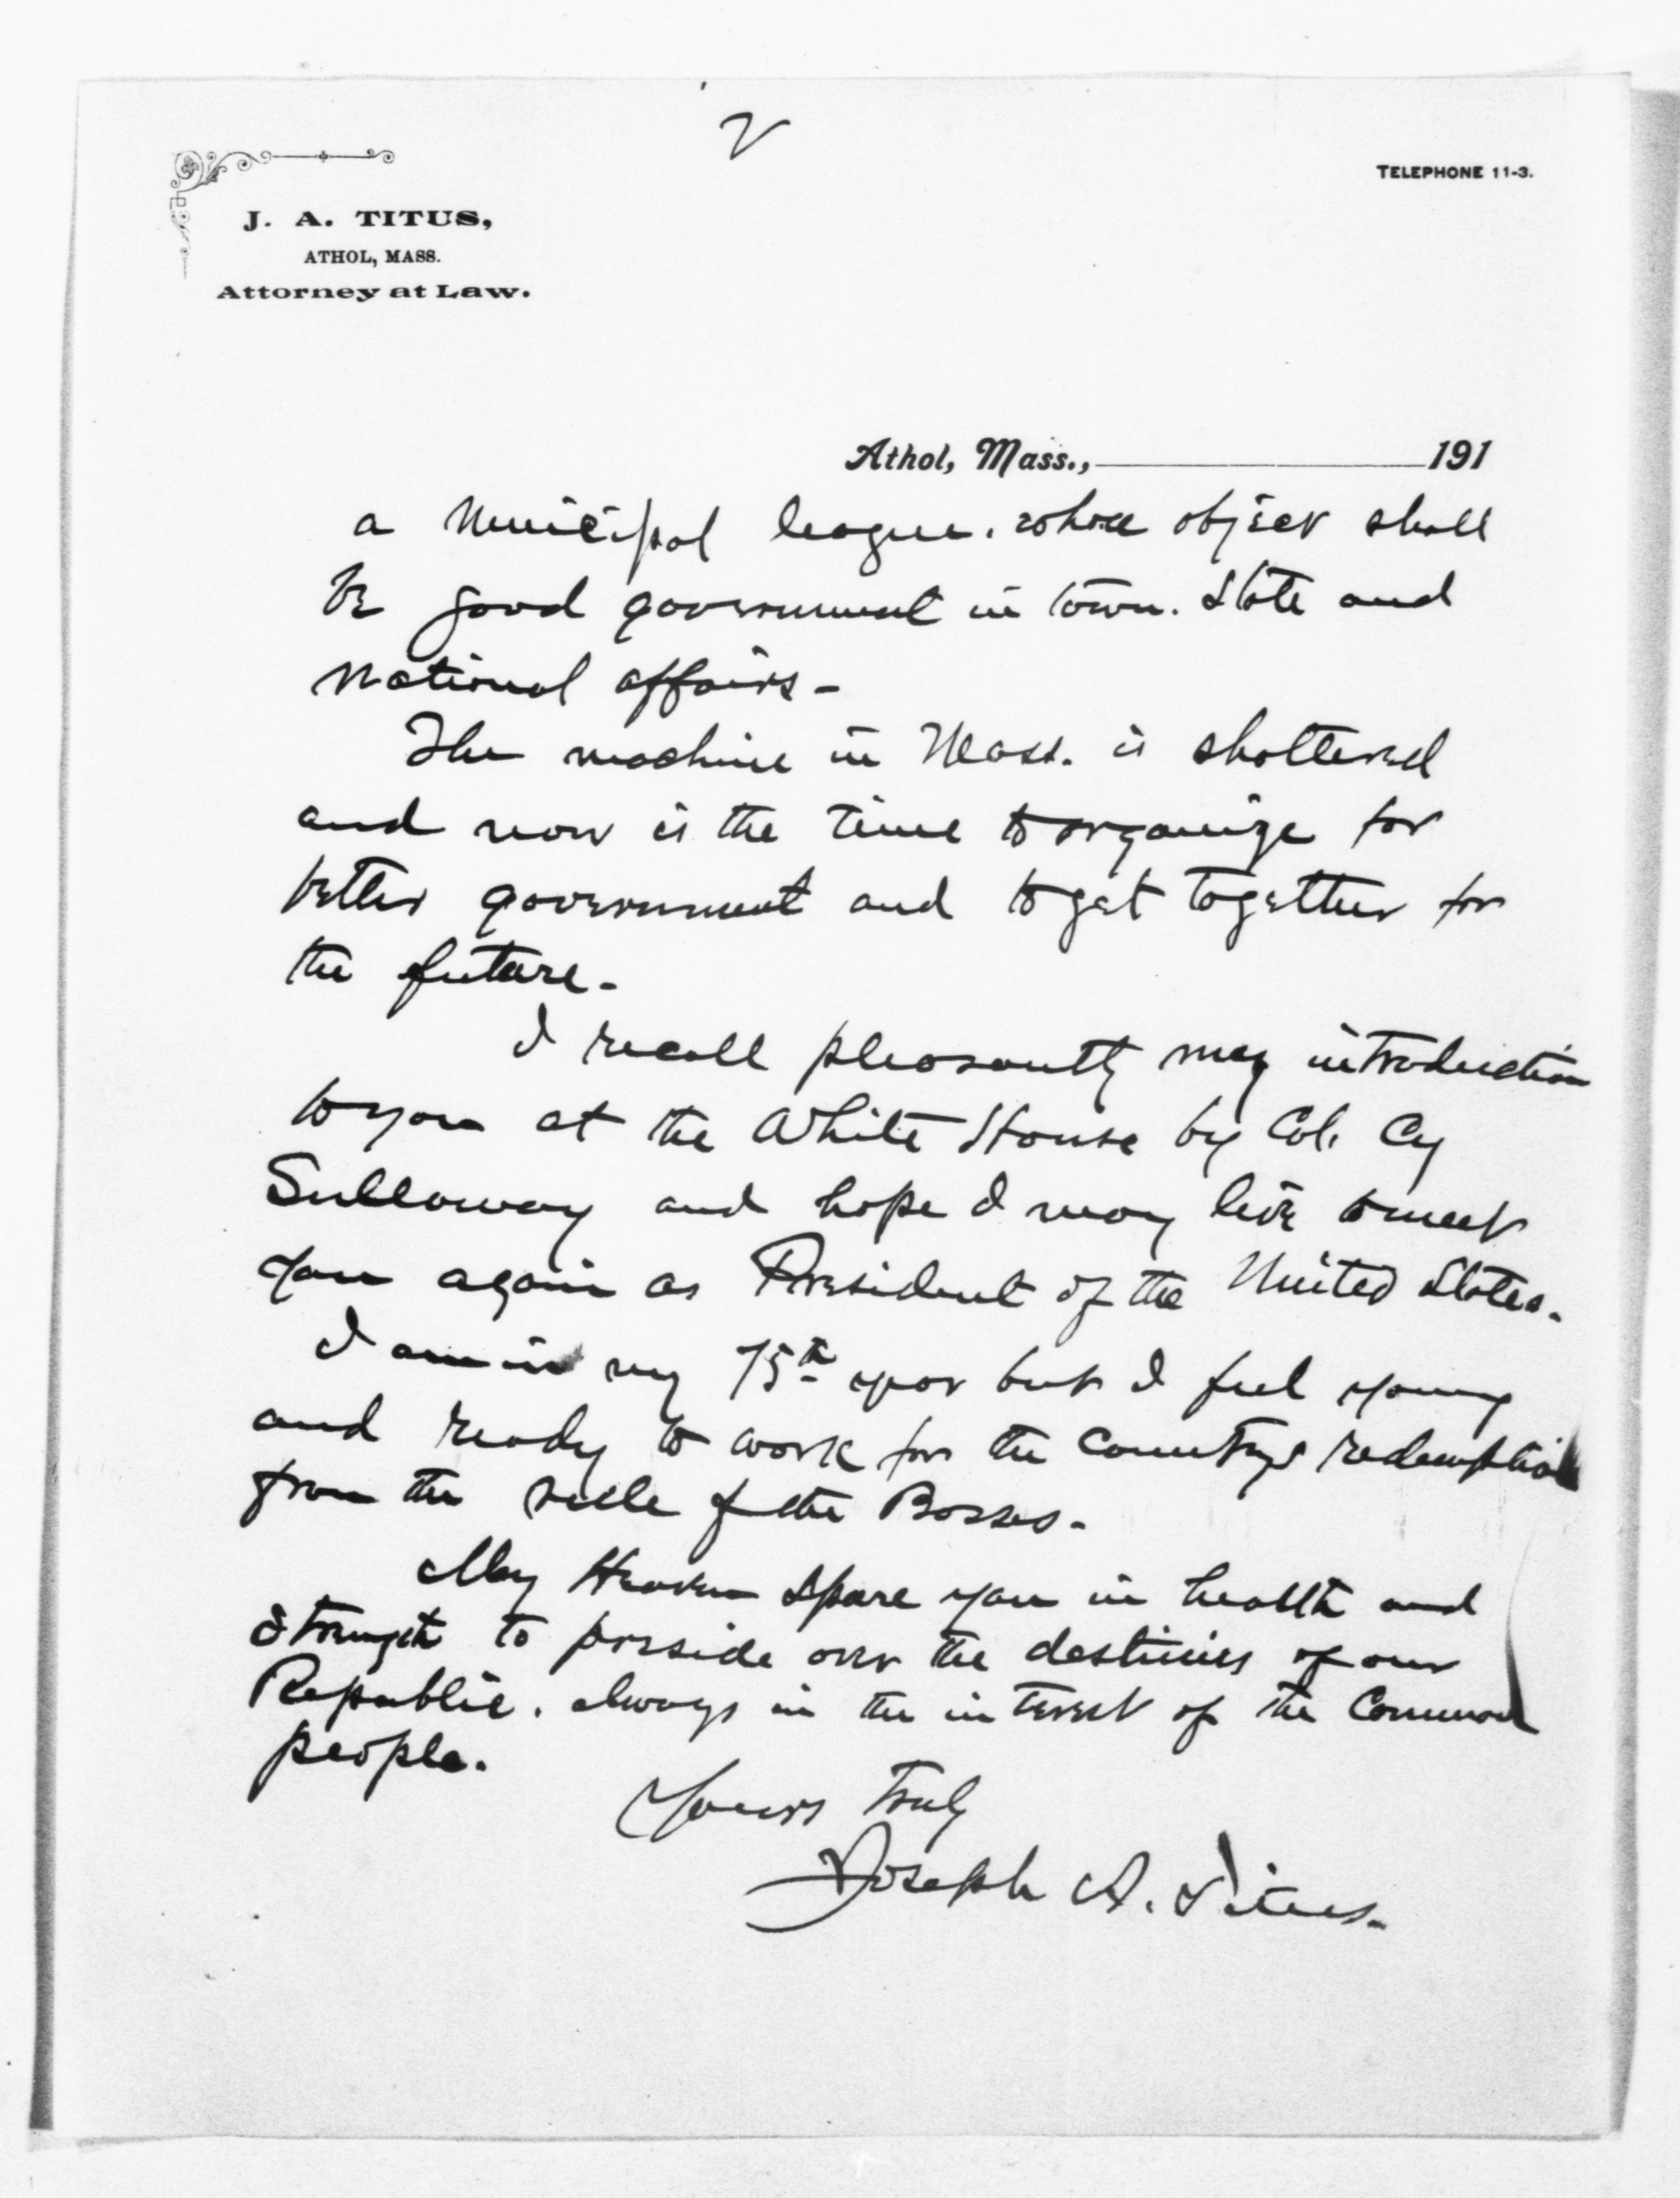 2
TELEPHONE 11-3.
J. A. TITUS,
ATHOL, MASS.
Attorney at Law.
Athol, Mass., 191
a Municipal league. whose object shall
be good government in town. State and
National affairs-
The machine in Mass. is shattered
and now is the time to organize for
better government and to get together for
the future-
I recall pleasantly my introduction
to you at the White House by Col. Cy
Sulloway and hope I may live to meet
you again as President of the United States.
I am in my 75th year but I feel young
and ready to work for the Countrys redemption
from the rule of the Bosses-
May Heaven Spare you in health and
Strength to preside over the destinies of our
Republic. always in the interest of the Common
people.
Yours Truly
Joseph A. Titus.